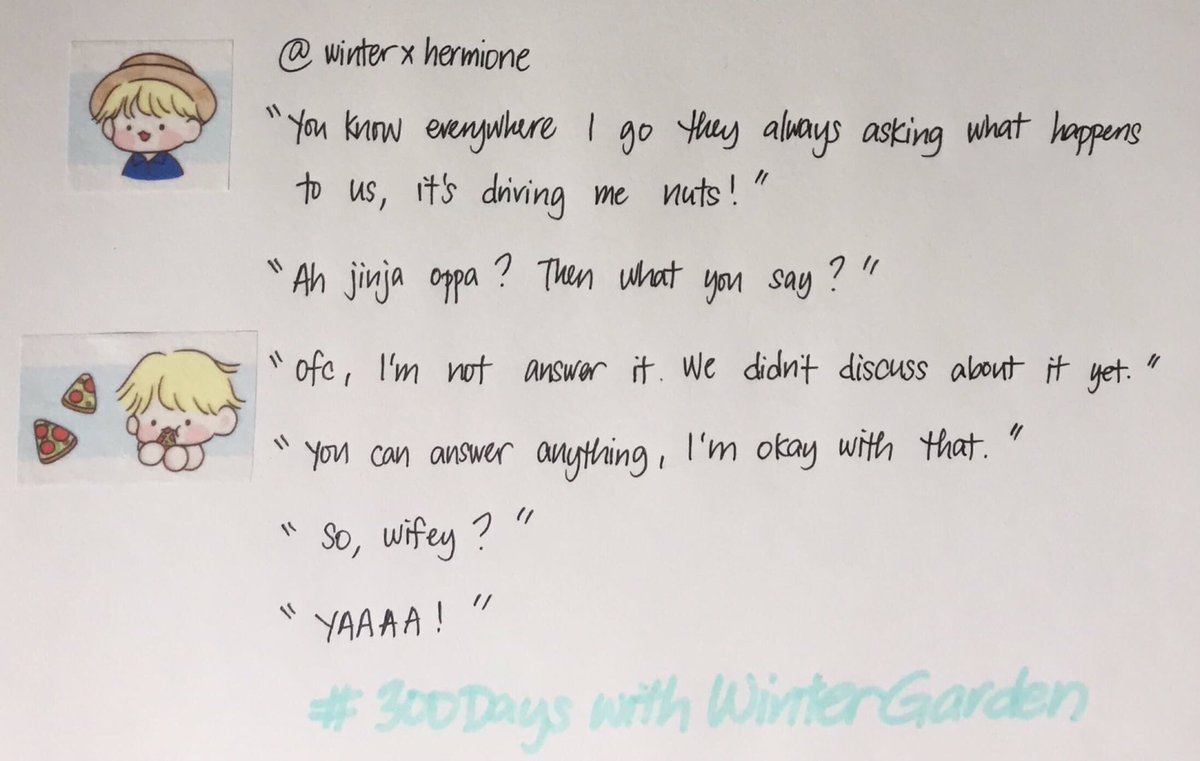 @ winter x hermione
"You know everywhere I go they always asking what happens
to us, it's driving me nuts!"
"Ah jinja oppa? Then what you say?"
"ofc, I'm not answer it. We didn't discuss about it yet."
"You can answer anything, I'm okay with that."
"So, wifey?"
"YAAAA!"
#300Days with WinterGarden